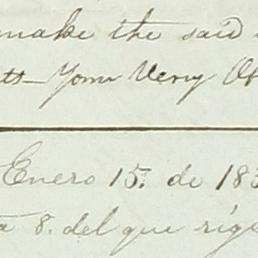 make the said
Your Very Ob
Enero 15. de 183
8. del que rige